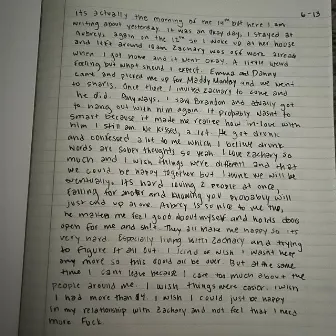 6-13
its actually the morning of the 14th but here I am
writing about yesterday. It was an okay day, I stayed at
Aubreys again on the 12th so I woke up at her house
and left around 10am Zachary was off work already
when I got home and it went okay. A little weird
feeling but what should I expect. Emma and Danny
came and picked me up for Maddy Manley and we went
to Snarfs. Once there I invited Zachary to come and
he did. Anyways. I saw Brandon and actually got
to hang out with him again. It probably wasn't to
smart because it made me realize how in love with
him I still am. We kissed, a lot. He got drunk
and confessed a lot to me which I believe drunk
words are sober thoughts so yeah. I love Zachary so
much and I wish things were different and that
we could be happy together but I think we will be
eventually. Its hard loving 2 people at once,
falling for another and knowing you probably will
just end up alone. Aubrey is so nice to me too,
he makes me feel good about myself and holds doors
open for me and shit. They all make me happy so its
very hard. Especially living with Zachary and trying
to figure it all out. I kind of wish I wasn't here
any more so this could all be over. But at the same
time I cant leave because I care too much about the
people around me. I wish things were easier. I wish
I had more than
I wish I could just be happy
in my relationship with Zachary and not feel that I need
more. Fuck.